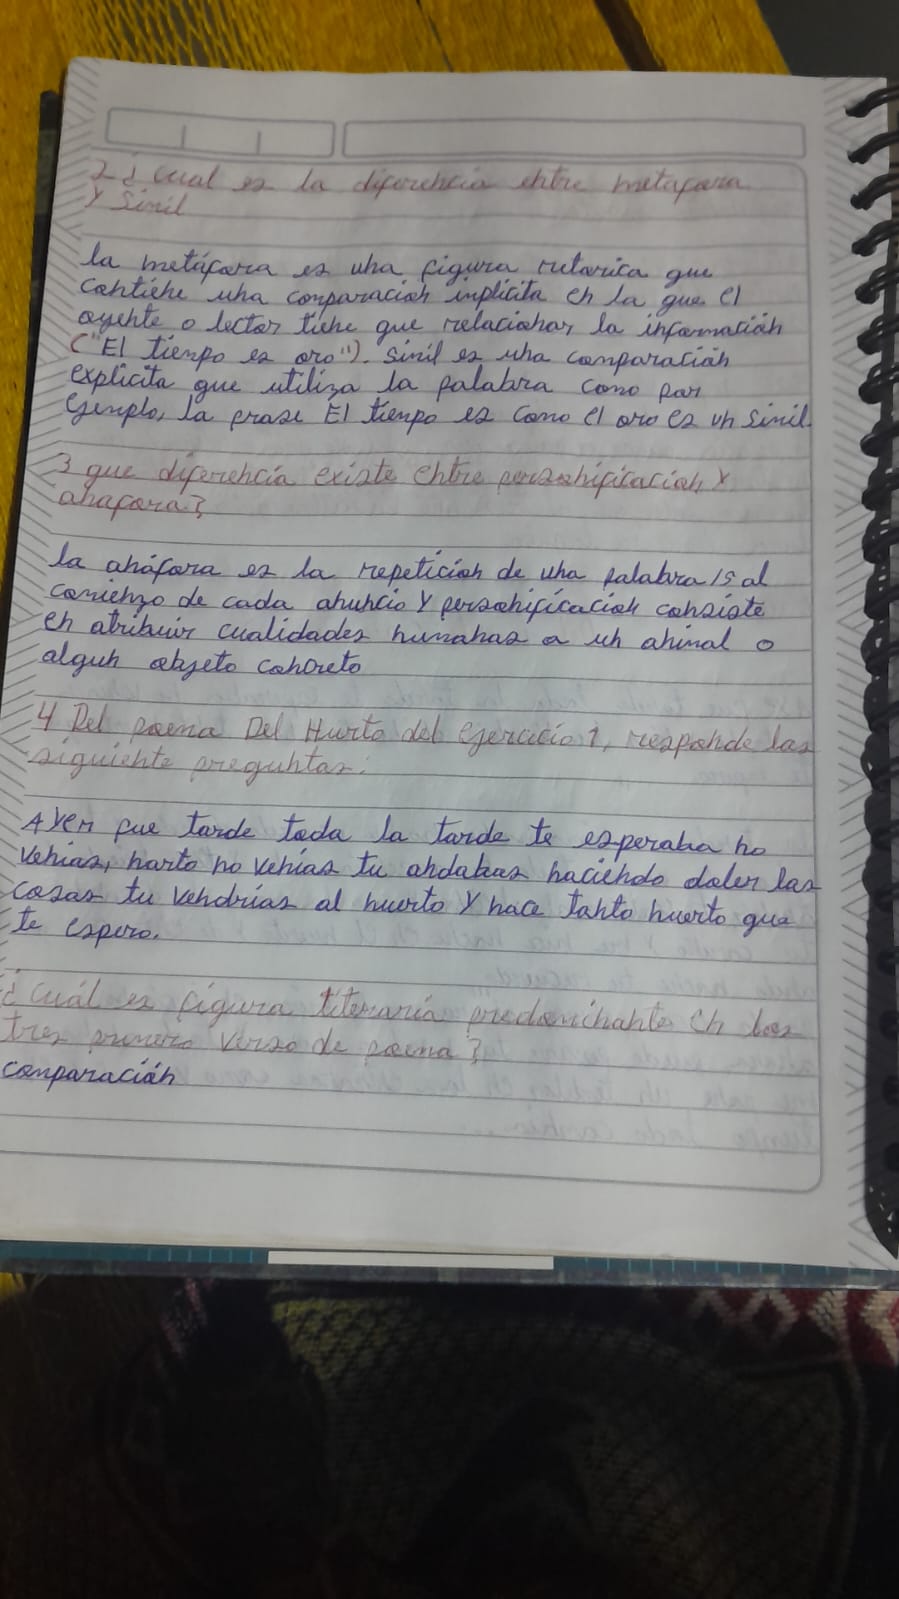 2 ¿ cual es la diferencia entre metafora
y Simil
la metáfora es una figura retorica que
contiene una conparación inplicita en la que el
oyente o lector tiene que relacionar la información
("El tienpo es oro"). simil es una comparación
explicita que utiliza la palabra como por
ejenplo, la frase El tienpo es como el oro es un simil.
3 que diferencia existe entre personificación y
anafora?
la anáfora es la repetición de una palabra/s al
comienzo de cada anuncio y personificación consiste
en atribuir cualidades humanas a un animal o
algun objeto concreto
4 Del poema Del Hurto del Ejercicio 1, responde las
siguiente preguntas:
Ayer fue tarde toda la tarde te esperaba no
venias, harto no venías tu andabas haciendo doler las
cosas tu vendrías al huerto y hace tanto huerto que
te espero.
¿ cuál es figura literaria predominante en los
tres primero verso de poema?
conparación